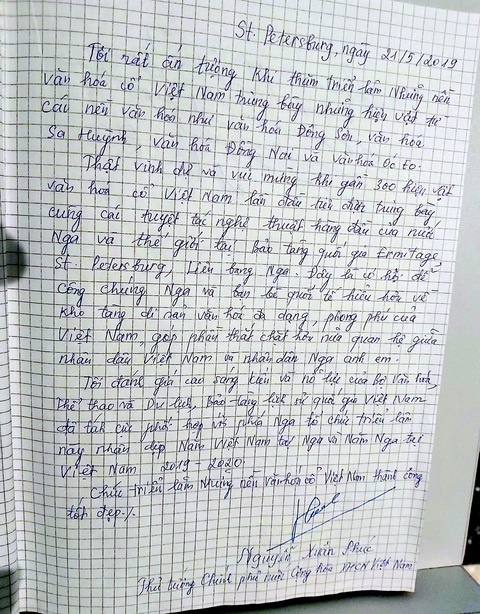 St. Petersburg, ngày 21/5/2019
Tôi rất ấn tượng khi thăm triển lãm Những nền
văn hóa cổ Việt Nam trưng bày những hiện vật từ
các nền văn hóa như văn hóa Đông Sơn, văn hóa
Sa Huỳnh, văn hóa Đồng Nai và văn hóa Óc Eo.
Thật vinh dự và vui mừng khi gần 300 hiện vật
văn hóa cổ Việt Nam lần đầu tiên được trưng bày
cùng các tuyệt tác nghệ thuật hàng đầu của nước
Nga và thế giới tại Bảo tàng quốc gia Ermitage
St. Petersburg, Liên bang Nga. Đây là cơ hội để
công chúng Nga và bạn bè quốc tế hiểu hơn về
kho tàng di sản văn hóa đa dạng, phong phú của
Việt Nam, góp phần thắt chặt hơn nữa quan hệ giữa
nhân dân Việt Nam và nhân dân Nga anh em.
Tôi đánh giá cao sáng kiến và nỗ lực của Bộ Văn hóa,
Thể thao và Du lịch, Bảo tàng lịch sử quốc gia Việt Nam
đã tích cực phối hợp với phía Nga tổ chức triển lãm
này nhân dịp Năm Việt Nam tại Nga và Năm Nga tại
Việt Nam 2019 - 2020.
Chúc triển lãm Những nền văn hóa cổ Việt Nam thành công
tốt đẹp./.
Nguyễn Xuân Phúc
Thủ tướng Chính phủ nước Cộng hòa XHCN Việt Nam